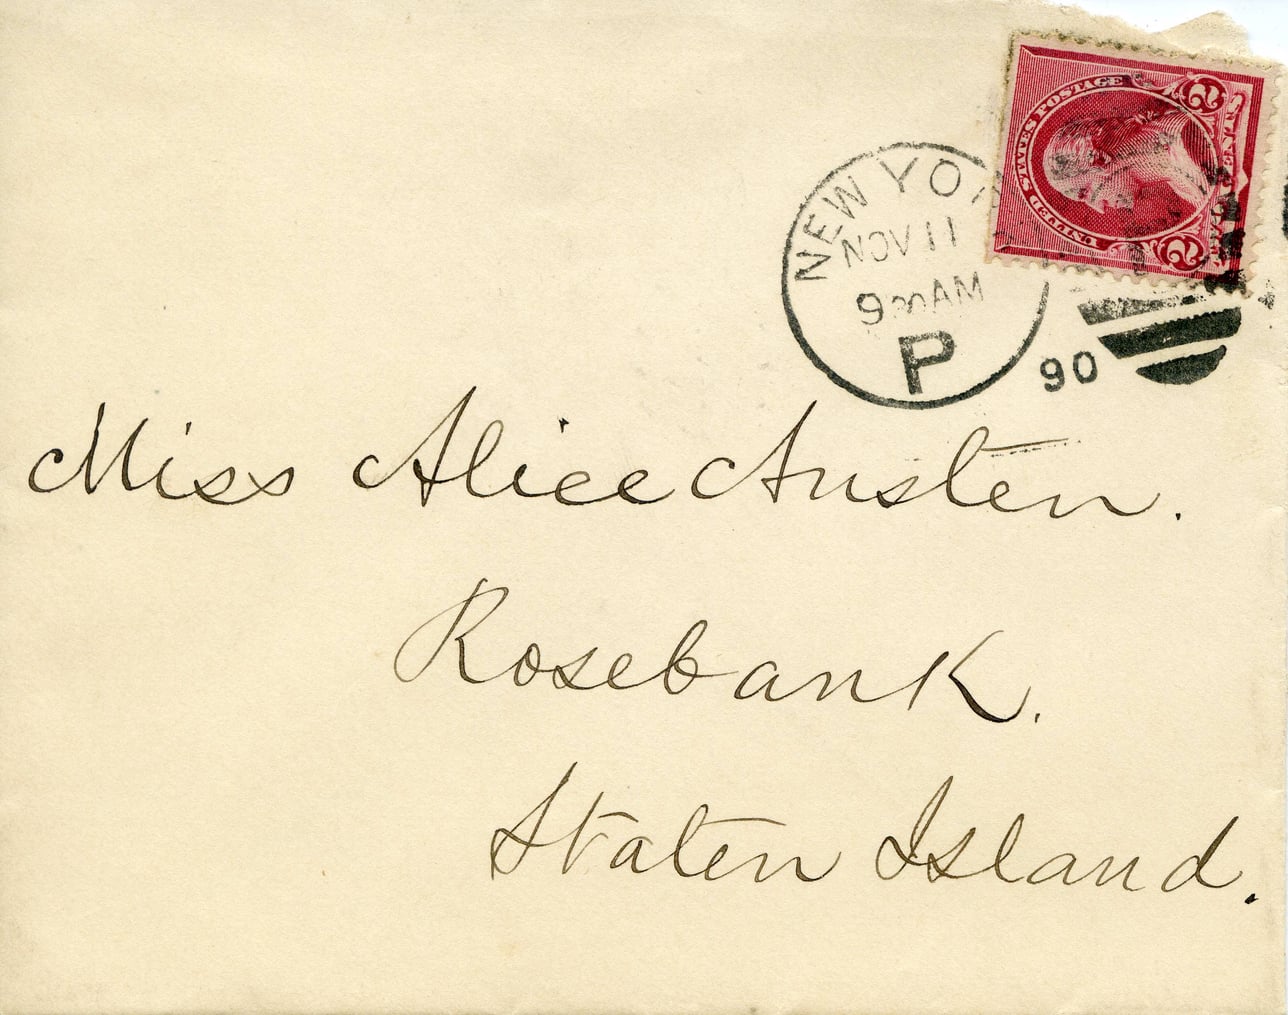 UNITED STATES POSTAGE
2 2
CENTS
NEW YO
NOV 11
9 30 AM
P
90
Miss Alice Austen.
Rosebank.
Staten Island.